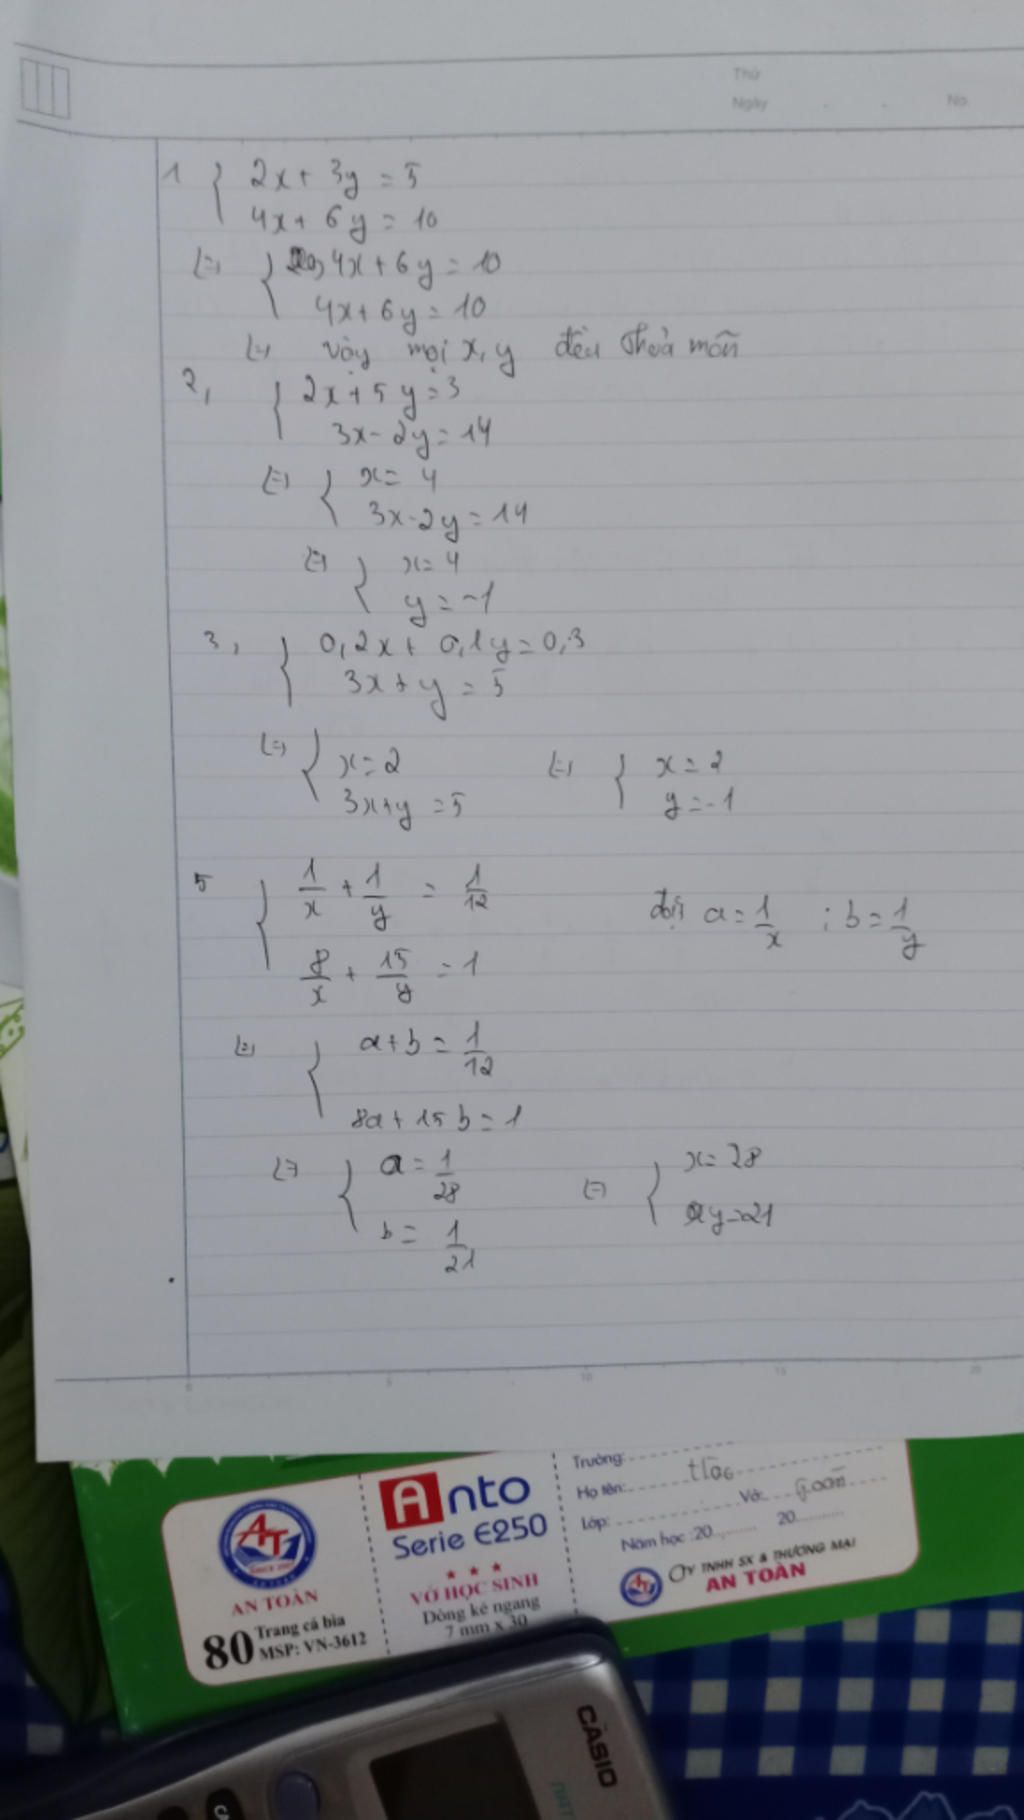 Thứ
Ngày . . No.
1 { 2x + 3y = 5
4x + 6y = 10
⇔ { 4x + 6y = 10
4x + 6y = 10
⇔ vậy mọi x, y đều thoả mãn
2, { 2x + 5y = 3
3x - 2y = 14
⇔ { x = 4
3x - 2y = 14
⇔ { x = 4
y = -1
3, { 0,2x + 0,1y = 0,3
3x + y = 5
⇔ { x = 2 ⇔ { x = 2
3x + y = 5 y = -1
5 { 1/x + 1/y = 1/12 đặt a = 1/x ; b = 1/y
8/x + 15/y = 1
⇔ { a + b = 1/12
8a + 15b = 1
⇔ { a = 1/28 ⇔ { x = 28
b = 1/21 y = 21
0 5 10 15 20
AT
SINCE
AN TOÀN
80 Trang cả bìa
MSP: VN-3612
Anto
Serie E250
★ ★ ★
VỞ HỌC SINH
Dòng kẻ ngang
7 mm x 30
Trường:
Họ tên:
Lớp: Vở:
Năm học :20 20
AT CTY TNHH SX & THƯƠNG MẠI
AN TOÀN
CASIO